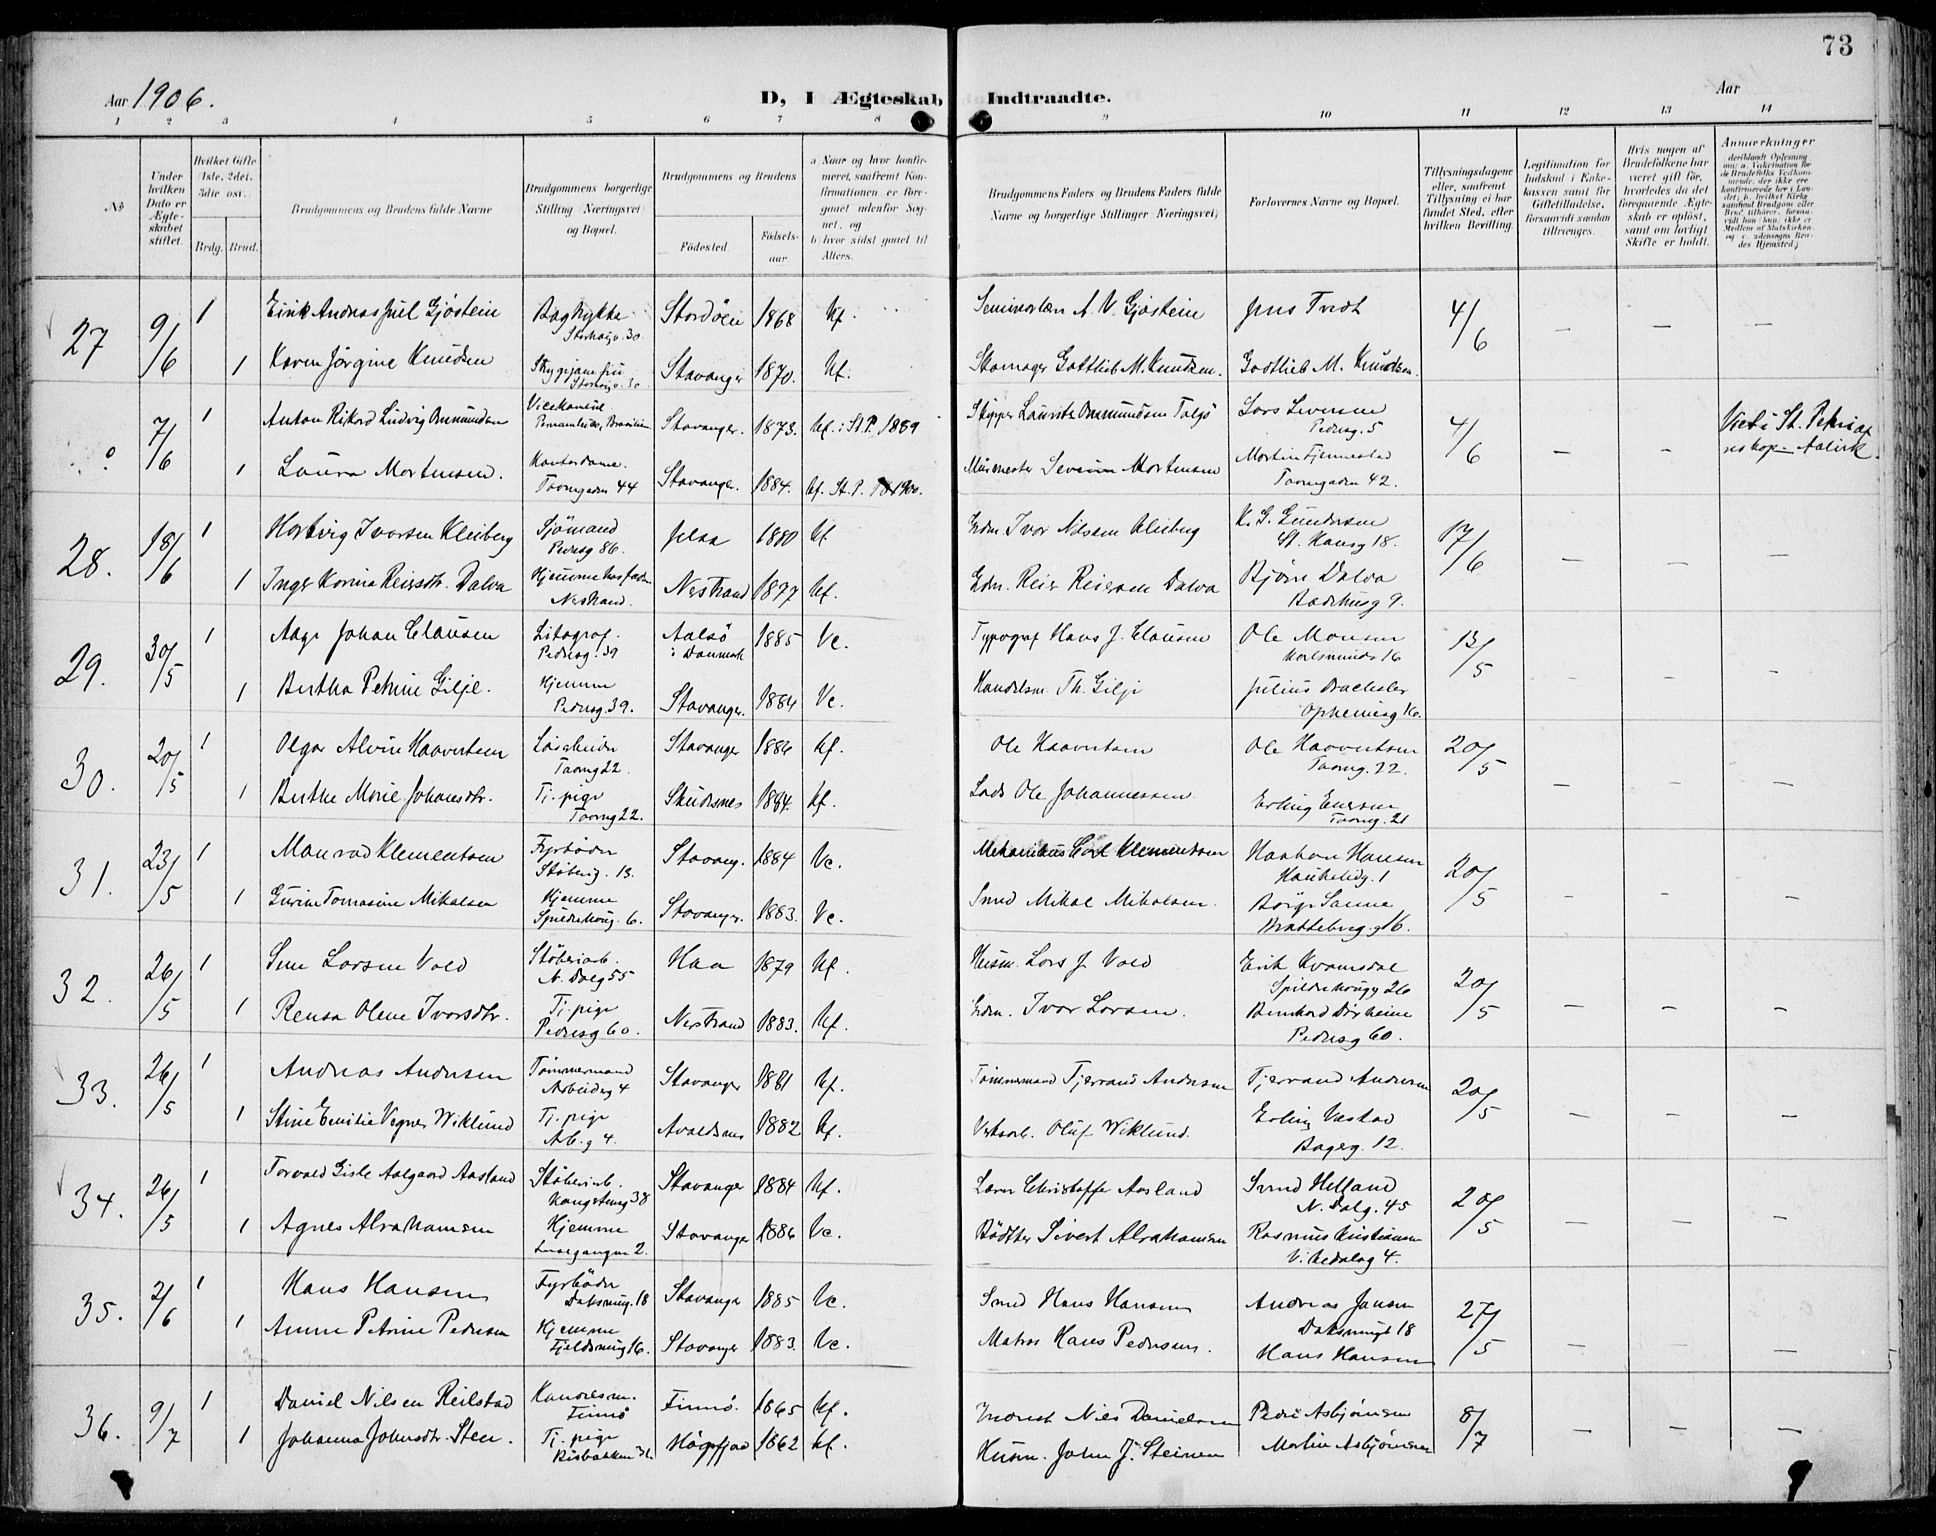 73
Aar 1906.
D, I Ægteskab Indtraadte.
Aar
1 2 3 4 5 6 7 8 9 10 11 12 13 14
No
Under hvilken Dato er Ægteskabet stiftet.
Hvilket Gifte (1ste, 2det, 3die osv.)
Brdg. Brud.
Brudgommens og Brudens fulde Navne
Brudgommens borgerlige Stilling (Næringsvei) og Bopæl.
Brudgommens og Brudens
Fødested. Fødselsaar.
a Naar og hvor konfirmeret, saafremt Konfirmationen er foregaaet udenfor Sognet, og
b hvor sidst gaaet til Alters.
Brudgommens Faders og Brudens Faders fulde Navne og borgerlige Stillinger (Næringsvei)
Forlovernes Navne og Bopæl.
Tillysningsdagene eller, saafremt Tillysning ei har fundet Sted, efter hvilken Bevilling.
Legitimation for Indskud i Enkekassen samt for Giftetilladelse, forsaavidt saadan tiltrænges.
Hvis nogen af Brudefolkene har været gift før, hvorledes da det foregaaende Ægteskab er opløst, samt om lovligt Skifte er holdt.
Anmærkninger
27 9/6 1 Eirik Andreas Juel Gjöstein Stordöen 1868 Kf. A. V. Gjöstein Jens Tvedt 4/6 – – –
1 Karen Jörgine Knudsen Stavanger 1870. Kf. Gottlieb M. Knudsen. Godtlieb M. Knudsen.
7/6 1 Anton Rikard Ludvig Ommundsen Vicekonsul Stavanger. 1873. Kf. i St. P. 1889 Skipper Lauritz Ommundsen Lars Iversen Pedersg. 5 4/6 – – Viet i St. Petri
1 Laura Mortensen. Kontordame. Taarngaden 44 Stavanger. 1884. Kf. St. P. 1900. Murmester Severin Mortensen Martin Fjermestad Taarngaden 42.
28. 18/6 1 Hartvig Ivarsen Kleiberg Sjömand Pedersg 86. Jelsa 1880 Kf Grdm. Ivar Nilssen Kleiberg K. G. Gundersen St. Hansg 18. 17/6 – – –
1 Inger Karina Reiersdtr. Dalva Nerstrand. Nerstrand 1877 Kf. Grdm. Reier Reiersen Dalva Björn Dalva Badehusg 9.
29. 30/5 1 Aage Johan Clausen Litograf. Pedersg. 39 Aalsö i Danmark 1885 Vc. Typograf Hans J. Clausen Ole Monsen 16 13/5 – – –
1 Bertha Petrine Gilje. Hjemme Pedersg. 39. Stavanger. 1884 Vc. Handelsm. Th. Gilje Julius Drachsler Opheimsg 16.
30. 20/5 1 Olgar Alvin Haavertsen Lösarbeider Taarng 22. Stavanger 1886 Kf. Ole Haavertsen Ole Haavertsen Taarng. 22. 20/5 – – –
1 Berthe Marie Johansdtr. Tj. pige Taarng 22. Skudesnes 1884. Kf. Lods Ole Johannessen Erling Enersen Taarng. 21
31. 23/5 1 Manrad Klementsen Fyrböder Stöberig. 13. Stavang. 1884 Vc. Mekanikus Carl Klementsen Haakon Hansen Haukelidg. 1 20/5 – – –
1 Gurine Tomasine Mikalsen Hjemme Spilderhaug. 6. Stavanger. 1883. Vc. Smed Mikal Mikalsen. Börge Sanne Brattebrg. 16.
32. 26/5 1 Sem Larsen Vold Stöberiarb. N. Dalg 55 Haa 1879 Kf. Husm. Lars J. Vold Erik Kvamsdal Spilderhaugg 26 20/5 – – –
1 Rensa Olene Ivarsdtr. Tj. pige Pedersg 60. Nerstrand 1883. Kf. Grdm. Ivar Larsen. Bernhard Dirheim Pedersg 60.
33. 26/5 1 Andreas Andersen Tömmermand Arbeiderg 4 Stavanger 1881 Kf. Tömmermand Tjerand Andersen Tjerand Andersen 20/5 – – –
1 Stine Emilie Vegner Wiklund Tj. pige Arb. g 4. Avaldsnes 1882 Kf. Oluf Wiklund. Erling Vastad Bageg. 12.
34. 26/5 1 Torvald Gisle Aalgaard Aasland Stöberiarb. Kongsteng 38 Stavanger 1884 Kf. Lærer Christoffer Aasland Svend Helland N. Dalg. 45 20/5 – – –
1 Agnes Abrahamsen Hjemme 2. Stavanger 1886 Vc. Bödtker Sivert Abrahamsen Rasmus Kristiansen V. Nedalsg 4.
35. 2/6 1 Hans Hansen Fyrböder 18 Stavanger 1885 Vc. Smed Hans Hansen Andreas Jansen 18 27/5 – – –
1 Anne Petrine Pedersen Hjemme 16. Stavanger 1883. Vc. Matros Hans Pedersen. Hans Hansen
36. 9/7 1 Daniel Nilsen Reilstad Handelsm. Finnö Finnö. 1865 Kf. Nils Danielsen Peder Asbjörnsen 8/7 – – –
1 Johanna Johnsdtr. Steen. Tj. pige Högsfjord 1862 Kf. Husm. John J. Steinen Martin Asbjörnsen